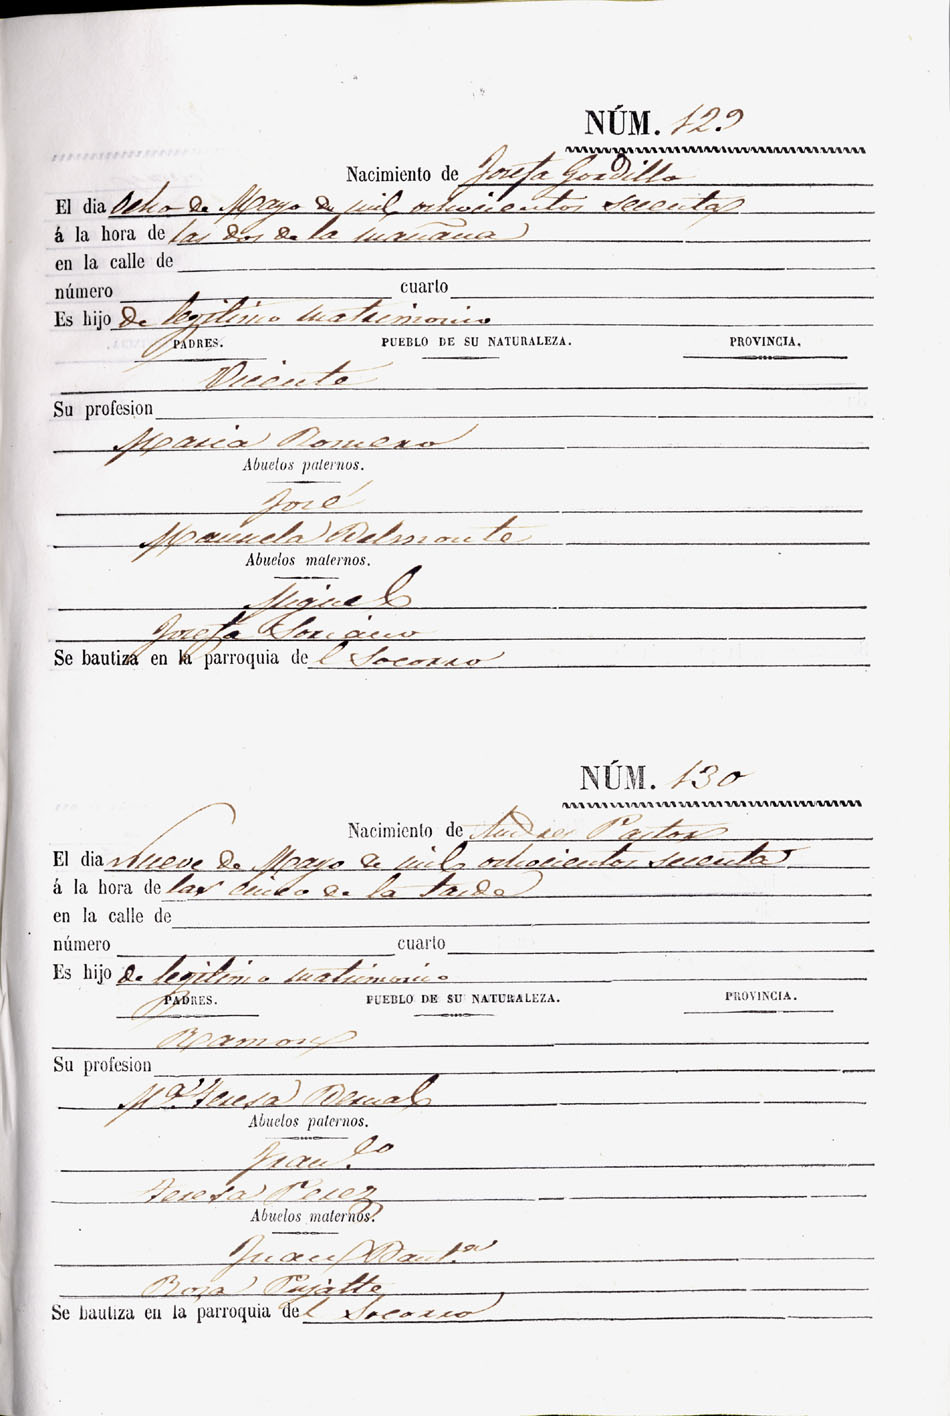 NÚM. 129
Nacimiento de Josefa Gordillo
El dia Ocho de Mayo de mil ochocientos sesenta
á la hora de las dos de la mañana
en la calle de
número cuarto
Es hijo de legitimo matrimonio
PADRES. PUEBLO DE SU NATURALEZA. PROVINCIA.
Vicente
Su profesion
Maria Romero
Abuelos paternos.
José
Manuela Belmonte
Abuelos maternos.
Miguel
Josefa Soriano
Se bautiza en la parroquia del Socorro
NÚM. 130
Nacimiento de Andres Pastor
El dia Nueve de Mayo de mil ochocientos sesenta
á la hora de las cinco de la tarde
en la calle de
número cuarto
Es hijo de legitimo matrimonio
PADRES. PUEBLO DE SU NATURALEZA. PROVINCIA.
Ramon
Su profesion
Mª. Teresa Bernal
Abuelos paternos.
Franco
Teresa Perez
Abuelos maternos.
Juan Baut.ª
Rosa Pujalte
Se bautiza en la parroquia del Socorro